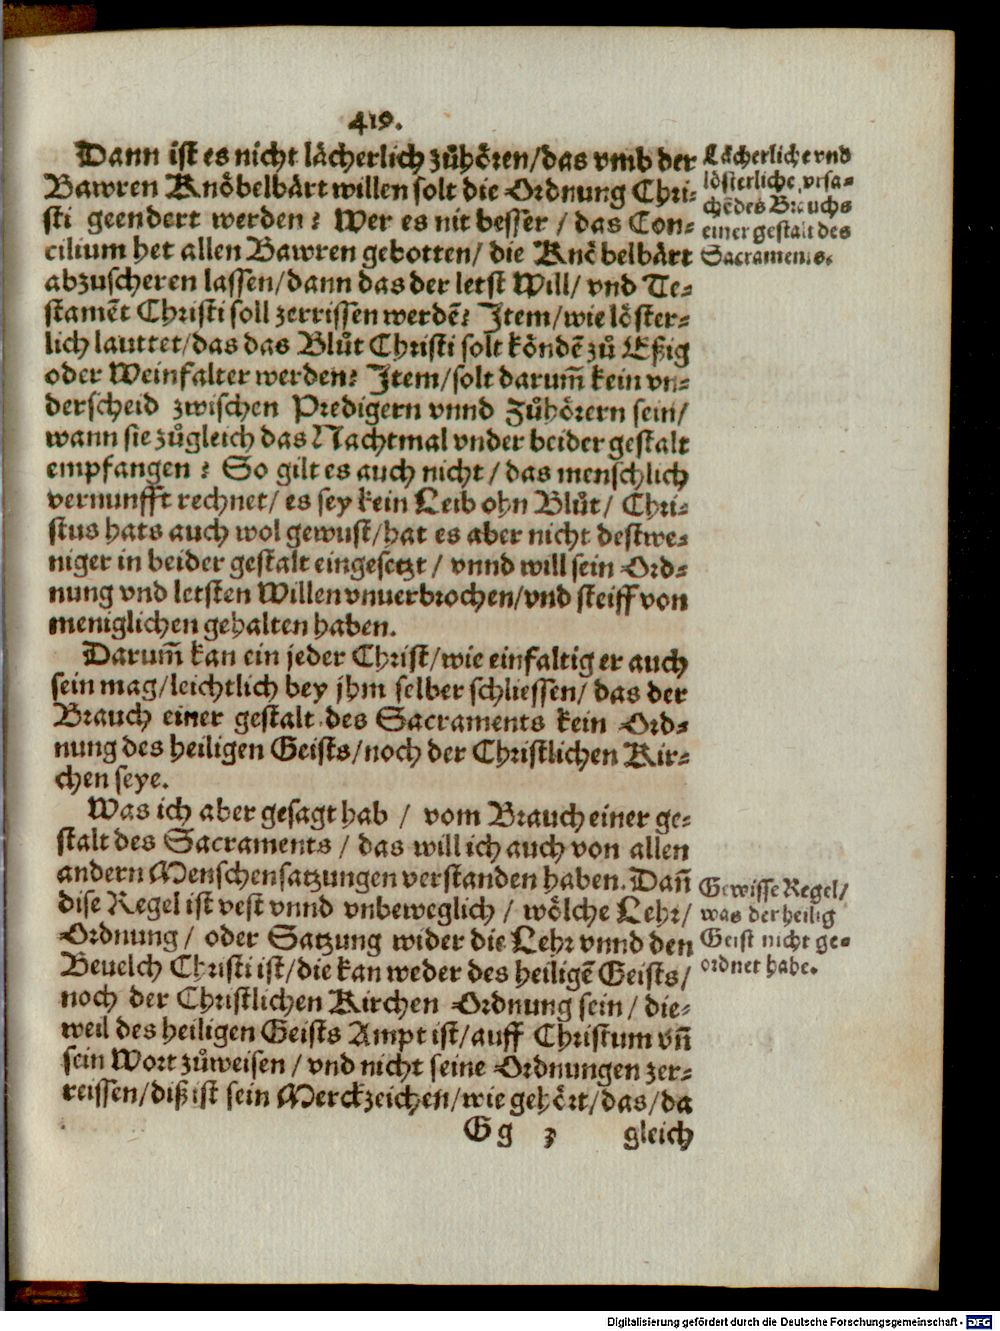 419.
Dann ist es nicht lächerlich zůhören/das vmb der
Bawren Knöbelbärt willen solt die Ordnung Chri-
sti geendert werden? Wer es nit besser / das Con-
cilium het allen Bawren gebotten/ die Knöbelbärt
abzuscheren lassen/dann das der letst Will/ vnd Te-
stamēt Christi soll zerrissen werdē? Item/wie löster-
lich lauttet/das das Blůt Christi solt köndē zů Eßig
oder Weinfalter werden? Item/solt darum̄ kein vn-
derscheid zwischen Predigern vnnd Zůhörern sein/
wann sie zůgleich das Nachtmal vnder beider gestalt
empfangen ? So gilt es auch nicht / das menschlich
vernunfft rechnet/ es sey kein Leib ohn Blůt/ Chri-
stus hats auch wol gewust/hat es aber nicht destwe-
niger in beider gestalt eingesetzt / vnnd will sein Ord-
nung vnd letsten Willen vnuerbrochen/vnd steiff von
meniglichen gehalten haben.
Darum̄ kan ein jeder Christ/wie einfaltig er auch
sein mag/leichtlich bey jhm selber schliessen/ das der
Brauch einer gestalt des Sacraments kein Ord-
nung des heiligen Geists/noch der Christlichen Kir-
chen seye.
Was ich aber gesagt hab / vom Brauch einer ge-
stalt des Sacraments / das will ich auch von allen
andern Menschensatzungen verstanden haben. Dan̄
dise Regel ist vest vnnd vnbeweglich / wölche Lehr/
Ordnung/ oder Satzung wider die Lehr vnnd den
Beuelch Christi ist/die kan weder des heiligē Geists/
noch der Christlichen Kirchen Ordnung sein/ die-
weil des heiligen Geists Ampt ist/auff Christum vn̄
sein Wort zůweisen / vnd nicht seine Ordnungen zer-
reissen/diß ist sein Merckzeichen/wie gehört/das/da
Gg 3 gleich
Lächerliche vnd
lösterliche vrsa-
chē des Brauchs
einer gestalt des
Sacraments.
Gewisse Regel/
was der heilig
Geist nicht ge-
ordnet habe.
Digitalisierung gefördert durch die Deutsche Forschungsgemeinschaft - DFG